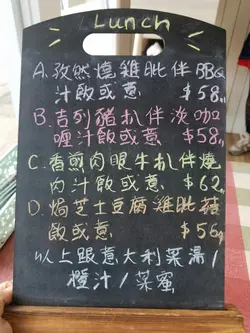 Lunch
A. 孜然燒雞肶伴BBQ
汁飯或意 $58
B. 吉列豬扒伴淡咖
喱汁飯或意 $58
C. 香煎肉眼牛扒伴燒
肉汁或意 $62
D. 焗芝士豆腐雞肶
飯或意 $56
以上跟意大利菜湯/
橙汁/菜蜜